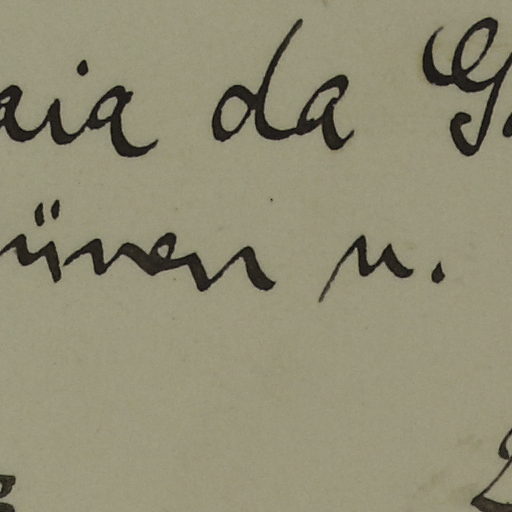 aia da G
ünen u.